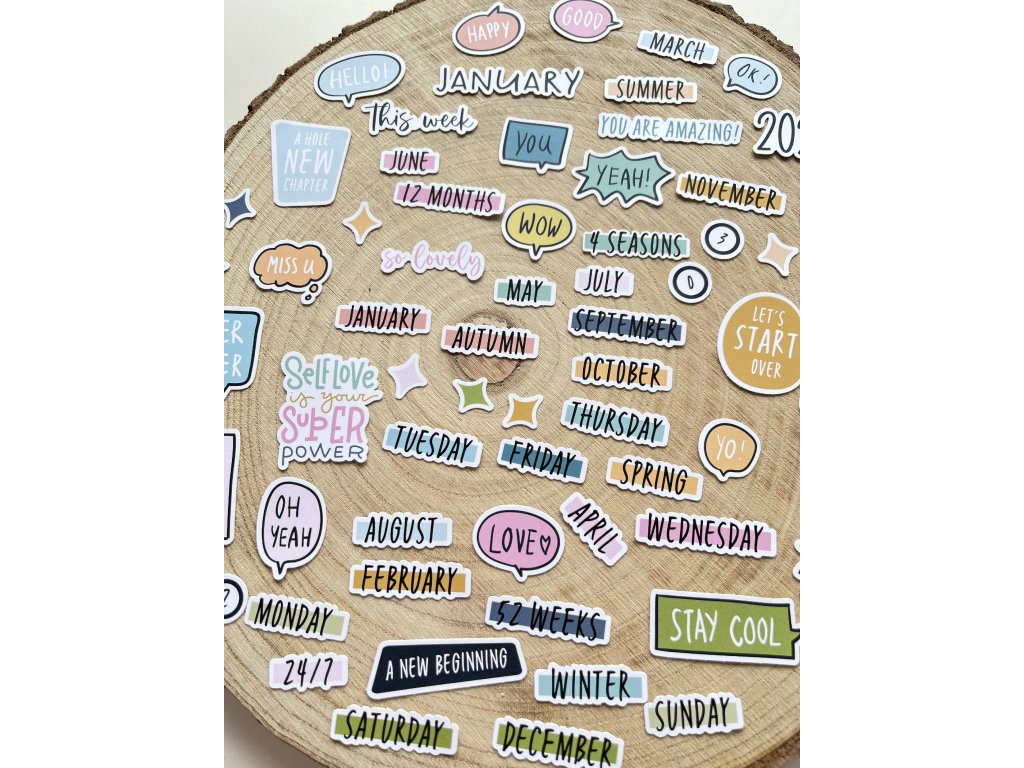 HAPPY
GOOD
MARCH
HELLO!
JANUARY
SUMMER
OK!
this week
YOU ARE AMAZING!
A HOLE
NEW
CHAPTER
YOU
JUNE
YEAH!
12 MONTHS
NOVEMBER
WOW
4 SEASONS
3
MISS U
so lovely
MAY
JULY
0
JANUARY
AUTUMN
SEPTEMBER
LET'S
START
OVER
SELF LOVE
is your
SUPER
POWER
OCTOBER
THURSDAY
TUESDAY
FRIDAY
SPRING
YO!
OH
YEAH
AUGUST
LOVE
APRIL
WEDNESDAY
FEBRUARY
MONDAY
52 WEEKS
STAY COOL
24/7
A NEW BEGINNING
WINTER
SUNDAY
SATURDAY
DECEMBER